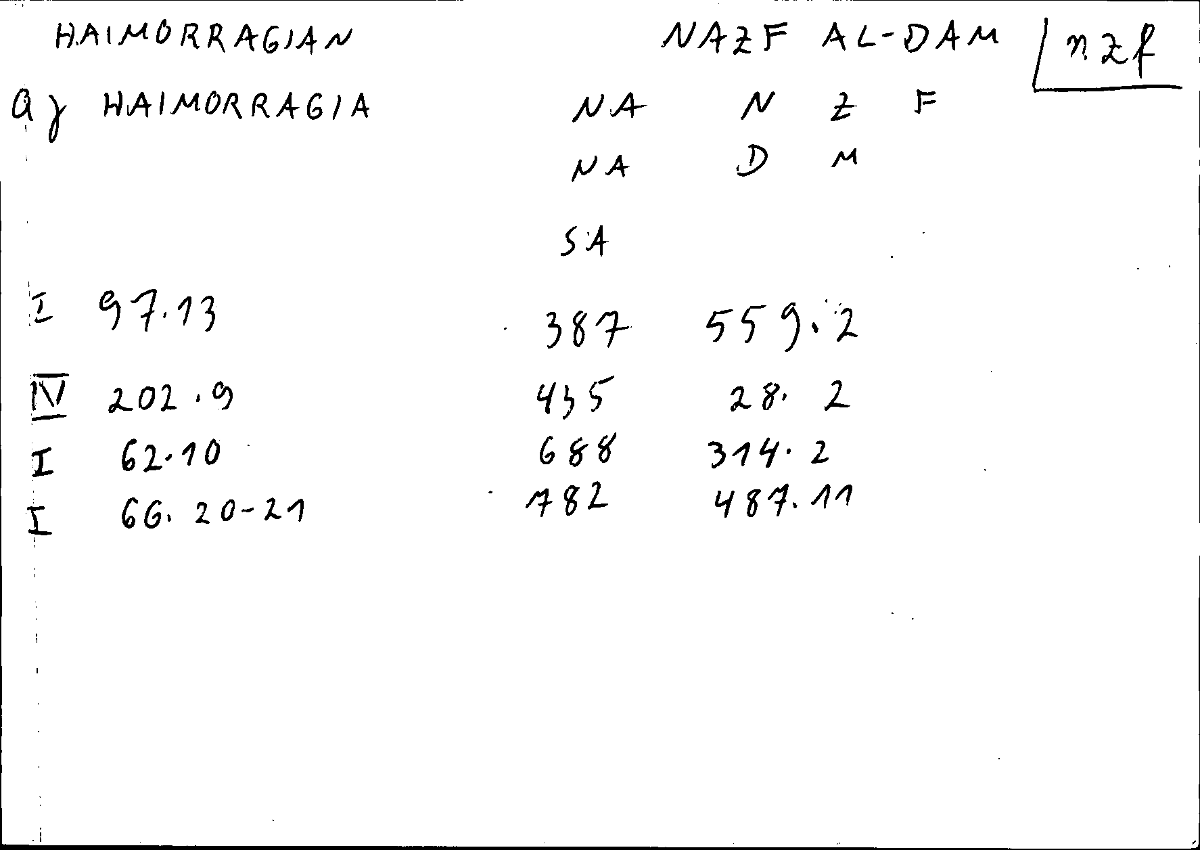 HAIMORRAGIAN NAZF AL-DAM nzf
aj HAIMORRAGIA NA N Z F
NA D M
SA
I 97.13 387 559.2
IV 202.9 435 28. 2
I 62.10 688 314.2
I 66. 20-21 782 487.11